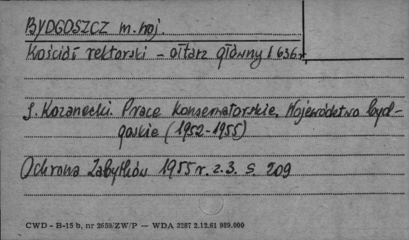 BYDGOSZCZ m. woj.
Kościół rektorski - ołtarz główny 1636 r.
J. Kozanecki. Prace Konserwatorskie. Województwo byd-
goskie (1952-1955)
Ochrona Zabytków 1955 r. z. 3. s. 209
CWD - B-15 b, nr 2659/ZW/P — WDA 2287 2.12.61 989.000